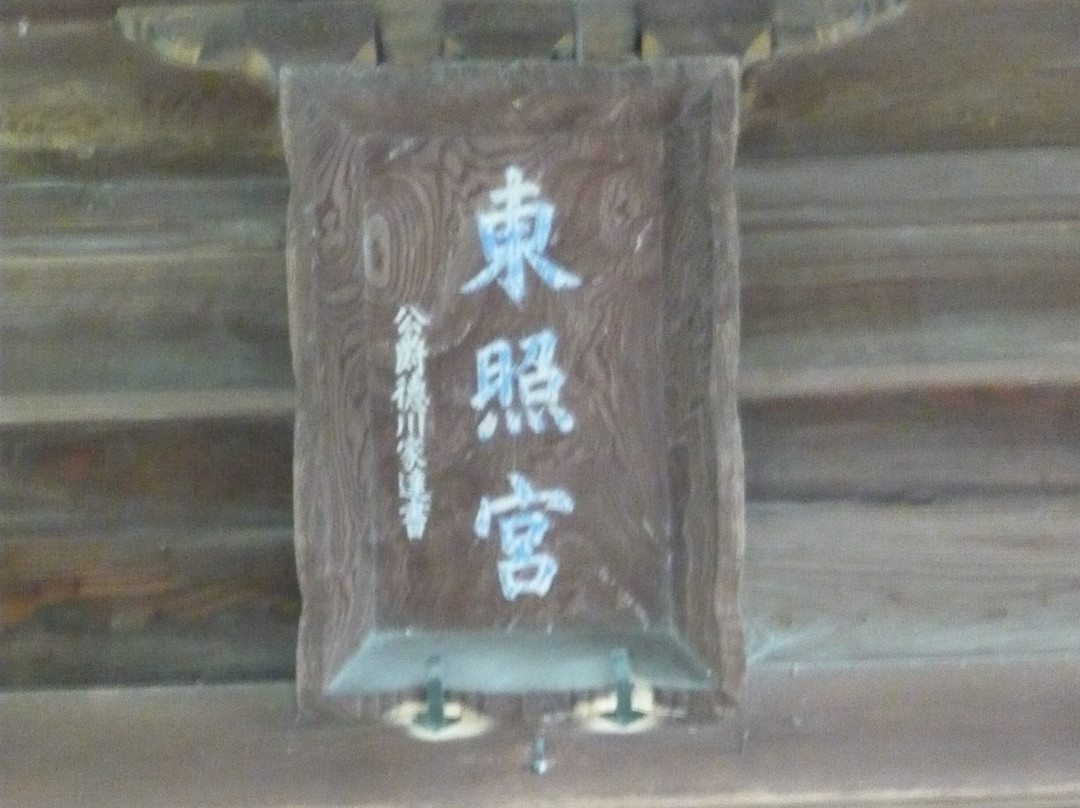 東照宮
公爵徳川家達書